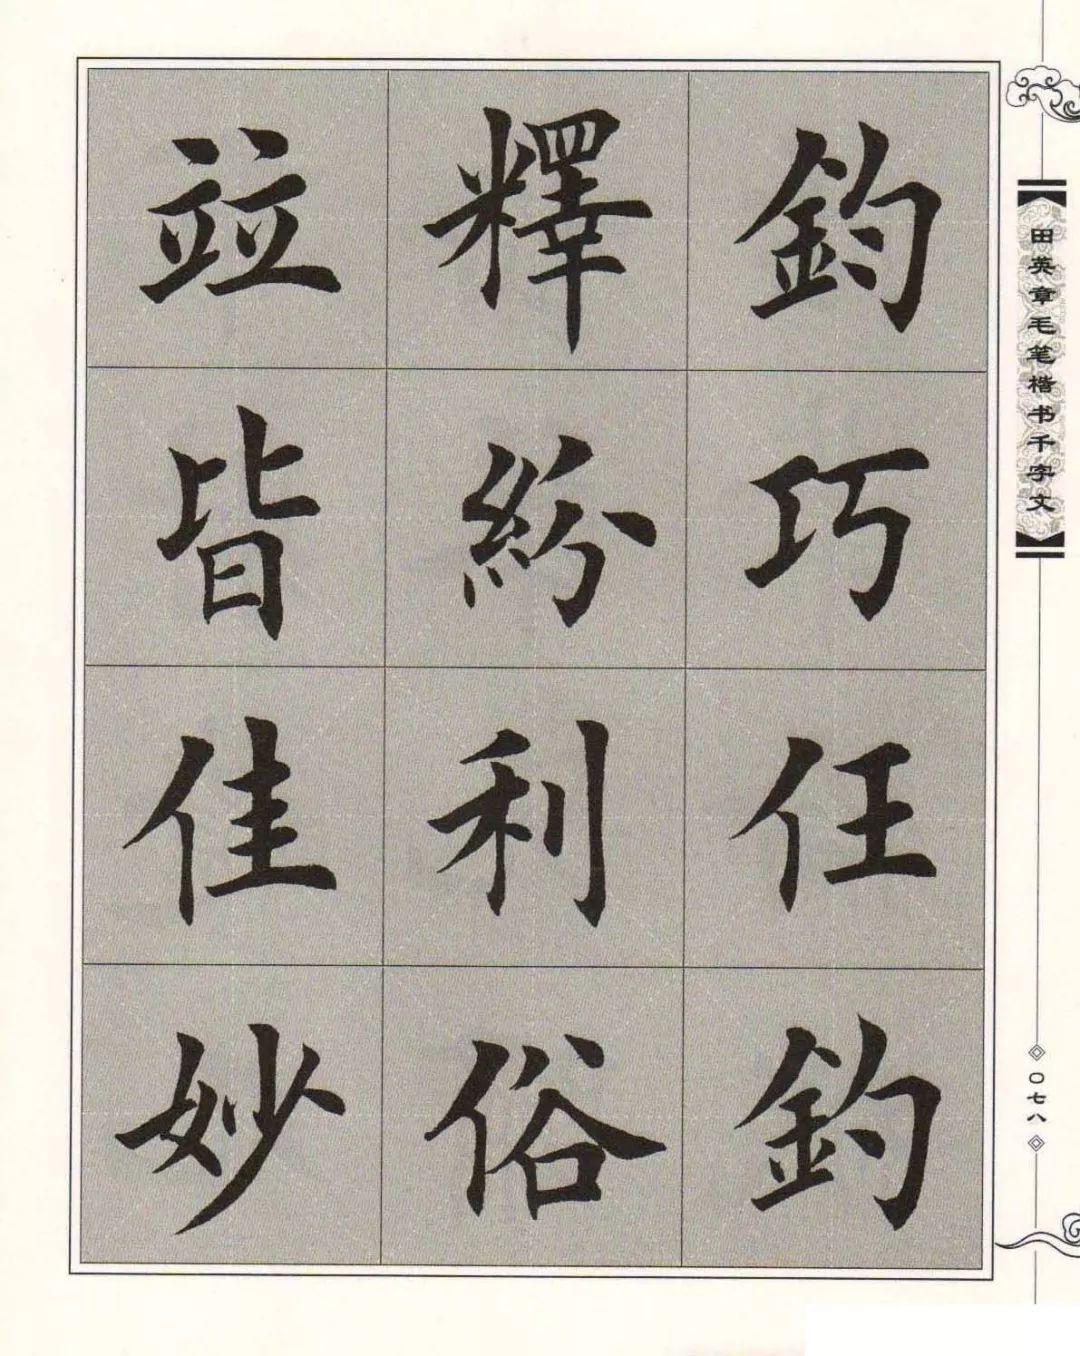 鈞巧任釣
釋紛利俗
竝皆佳妙
田英章毛笔楷书千字文
〇七八